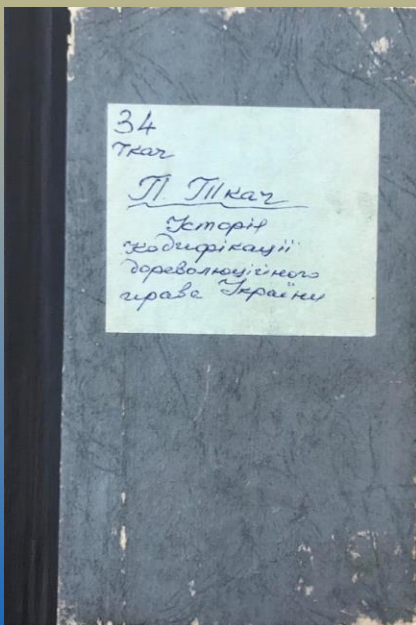 34
Ткач
П. Ткач
Історія
кодифікації
дореволюційного
права України